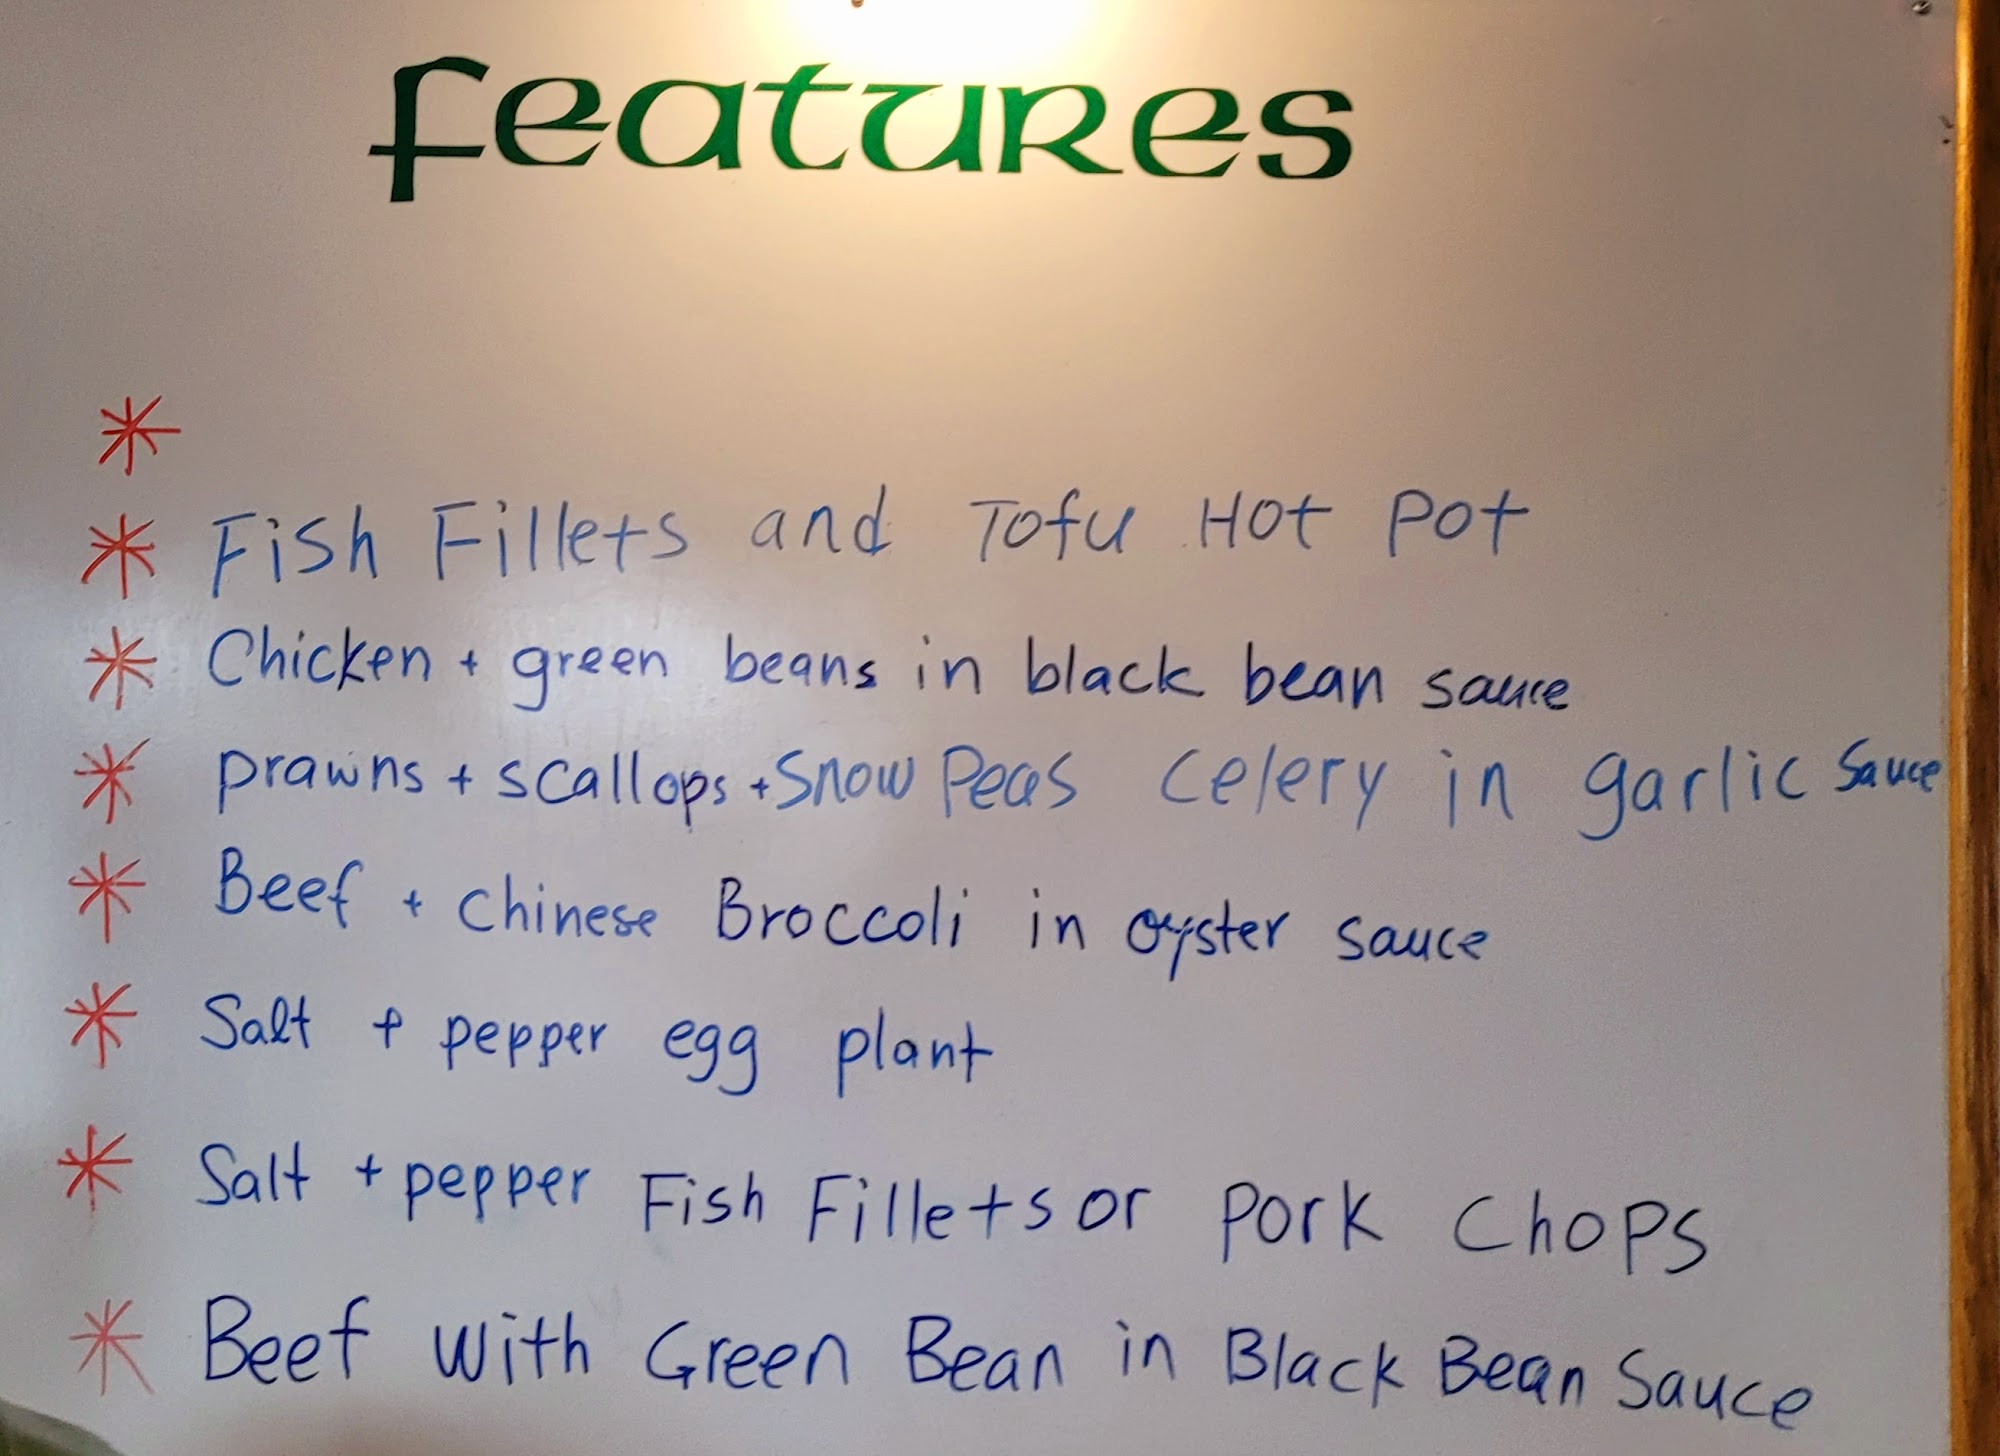 features
*
* Fish Fillets and Tofu Hot Pot
* Chicken + green beans in black bean sauce
* prawns + scallops + Snow Peas Celery in garlic Sauce
* Beef + Chinese Broccoli in oyster sauce
* Salt + pepper egg plant
* Salt + pepper Fish Fillets or Pork Chops
* Beef with Green Bean in Black Bean Sauce